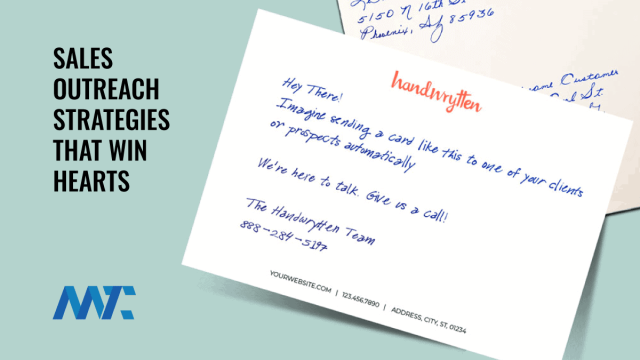 SALES
OUTREACH
STRATEGIES
THAT WIN
HEARTS
MTC
5150 N 16th St
Phoenix, Az 85936
Customer
St
handwrytten
Hey There!
Imagine sending a card like this to one of your clients
or prospects automatically
We're here to talk. Give us a call!
The Handwrytten Team
888-284-5197
YOURWEBSITE.COM | 123.456.7890 | ADDRESS, CITY, ST, 01234